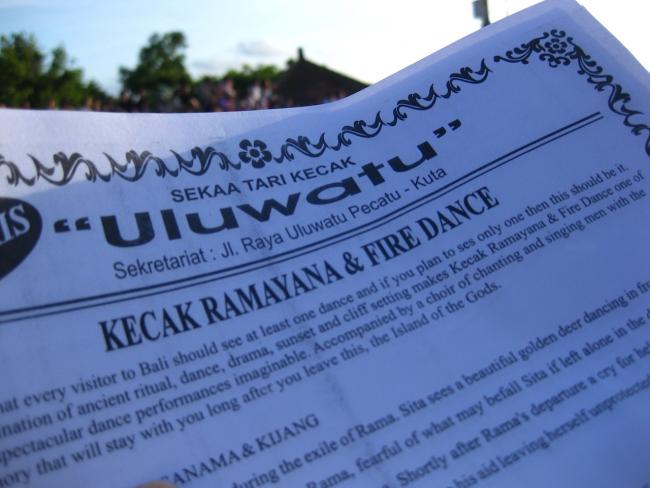 IS
SEKAA TARI KECAK
"Uluwatu"
Sekretariat : Jl. Raya Uluwatu Pecatu - Kuta
KECAK RAMAYANA & FIRE DANCE
hat every visitor to Bali should see at least one dance and if you plan to ses only one then this should be it.
ination of ancient ritual, dance, drama, sunset and cliff setting makes Kecak Ramayana & Fire Dance one of
spectacular dance performances imaginable. Accompanied by a choir of chanting and singing men with the
ory that will stay with you long after you leave this, the Island of the Gods.
ANAMA & KIJANG
during the exile of Rama. Sita sees a beautiful golden deer dancing in fr
Rama, fearful of what may befall Sita if left alone in the d
Shortly after Rama's departure a cry for hel
his aid leaving herself unprotected